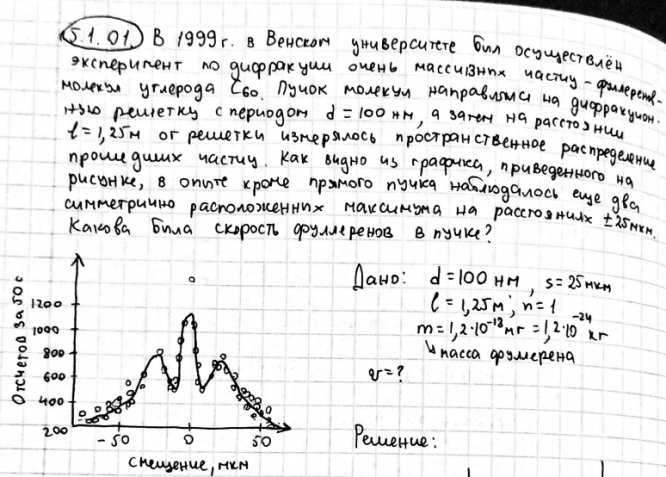 5.1.01. В 1999 г. в Венском университете был осуществлён
эксперимент по дифракции очень массивных частиц – фуллеренов-
молекул углерода C60. Пучок молекул направлялся на дифракцион.
ную решетку с периодом d = 100 нм, а затем на расстоянии
l = 1,25м от решетки измерялось пространственное распределение
прошедших частиц. Как видно из графика, приведенного на
рисунке, в опыте кроме прямого пучка наблюдалось еще два
симметрично расположенных максимума на расстояниях ±25мкм.
Какова была скорость фуллеренов в пучке?
Дано: d = 100 нм, s = 25мкм
l = 1,25м; n = 1
m = 1,2·10⁻¹⁸ мг = 1,2·10⁻²⁴ кг
масса фуллерена
v = ?
Решение:
Отсчетов за 50 с
1200
1000
800
600
400
200
-50 0 50
смещение, мкм